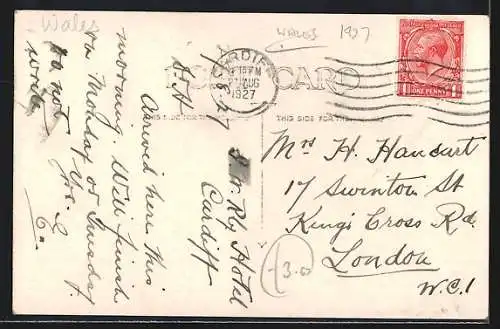 Wales
WALES 1927
POST CARD
CARDIFF
15 PM
AUG
1927
ONE PENNY
THIS SIDE FOR THE
Rly Hotel
Cardiff
Arrived here this
morning. Will finish
on Monday or Tuesday
do not
write
Mrs H. Handcart
17 Swinton St
Kings Cross Rd.
London
W.C.1
3.0